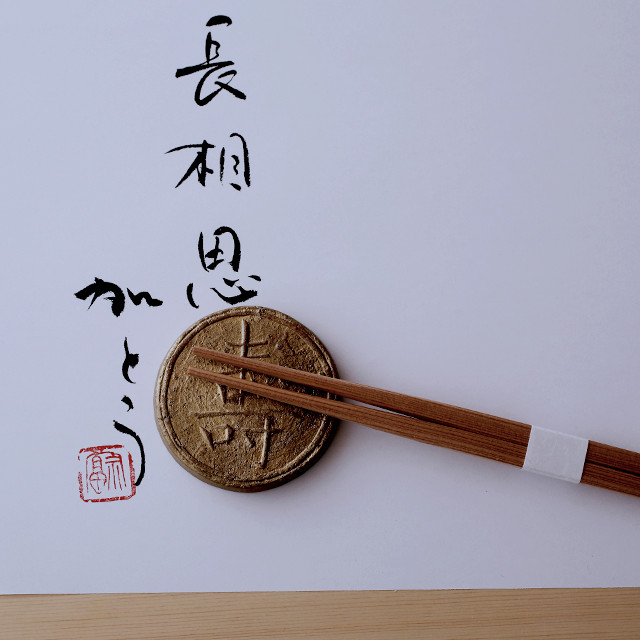 長相思
加とう
壽